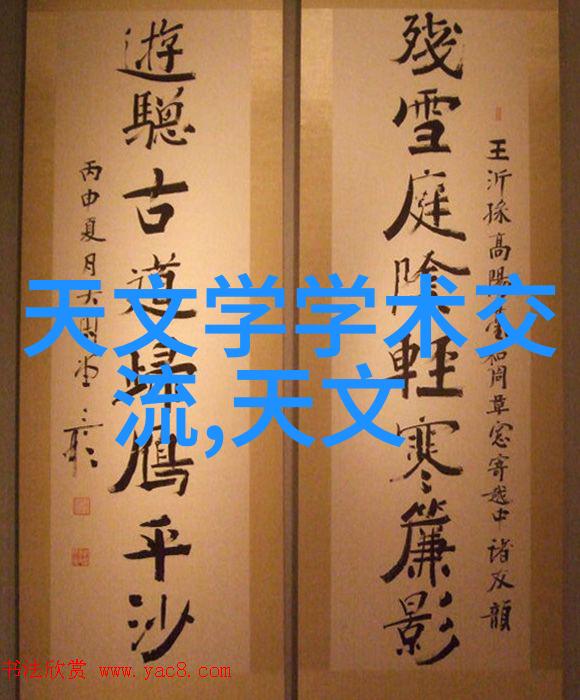 殘雪庭陰輕寒簾影
王沂孫高陽臺和周草窓寄越中諸友韻
遊驄古道歸鴈平沙
丙申夏月
天文学学术交
流,天文
书法欣赏 www.yac8.com